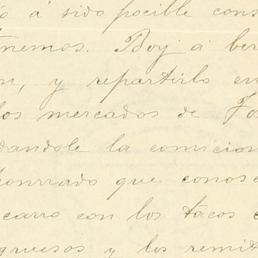 ó á sido pocible cons
tnemos. Boy á ber
n, y repartirlo en
los mercados de Fo
dandole la comicion
honrrado que conosc
carro con los tacos c
gruesos y los remit